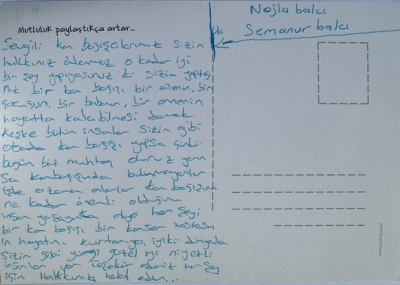 Mutluluk paylaştıkça artar...
Sevgili kan bağışçılarımız sizin
hakkınız ödenmez o kadar iyi
bir şey yapıyosunuz ki sizin yaptığı
nız bir kan bağışı bir ailenin, bir
çocuğun, bir babanın, bir annenin
hayatta kalabilmesi demek
keşke bütün insanlar sizin gibi
olsada kan bağışı yapsa çünkü
bugün biz muhtaç duruz yarın
Kan bağışında bulunmayanlar
işte o zaman anlarlar kan bağışının
ne kadar önemli olduğunu
insan yaşayınca diyo her şeyi
bir kan bağışı bir kanser hastasın
ın hayatını kurtarıyo, iyiki dünyada
sizin gibi yüreği güzel iyi niyetli
insanlar var teşekkür ederiz her şey
için hakkınızı helal edin...
Necla balcı
Semanur balcı